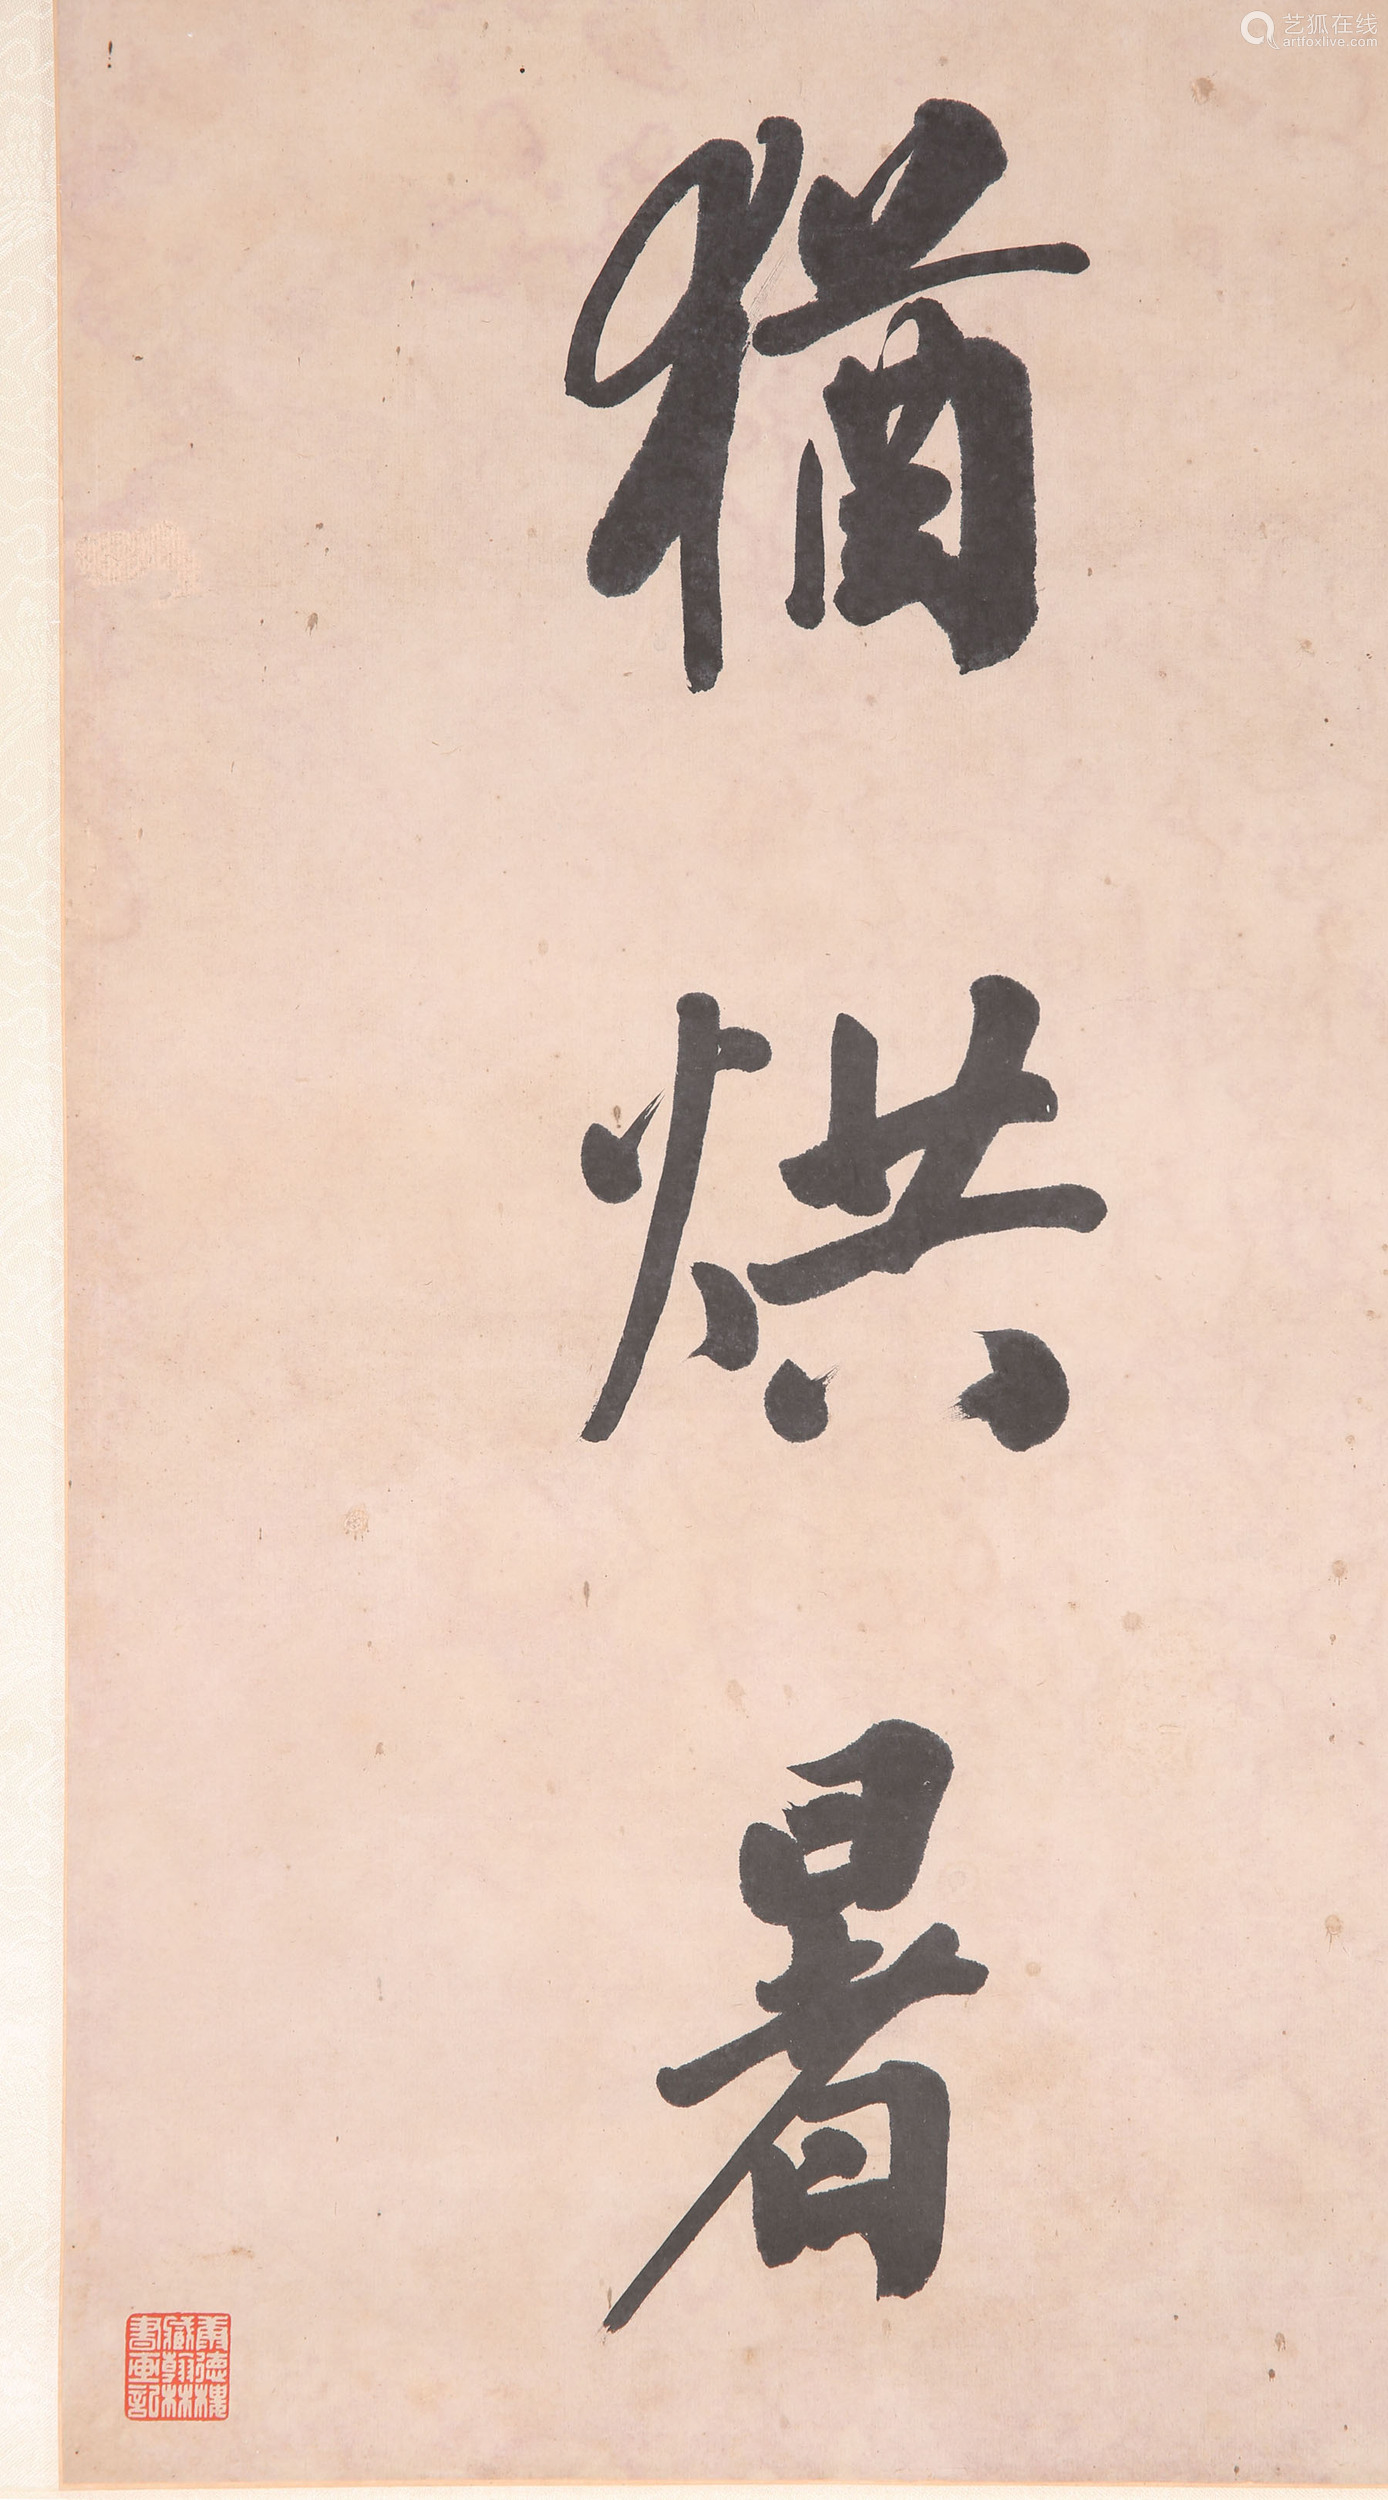 艺狐在线
artfoxlive.com
猶烘暑
德樓
藏翰林
書畫記